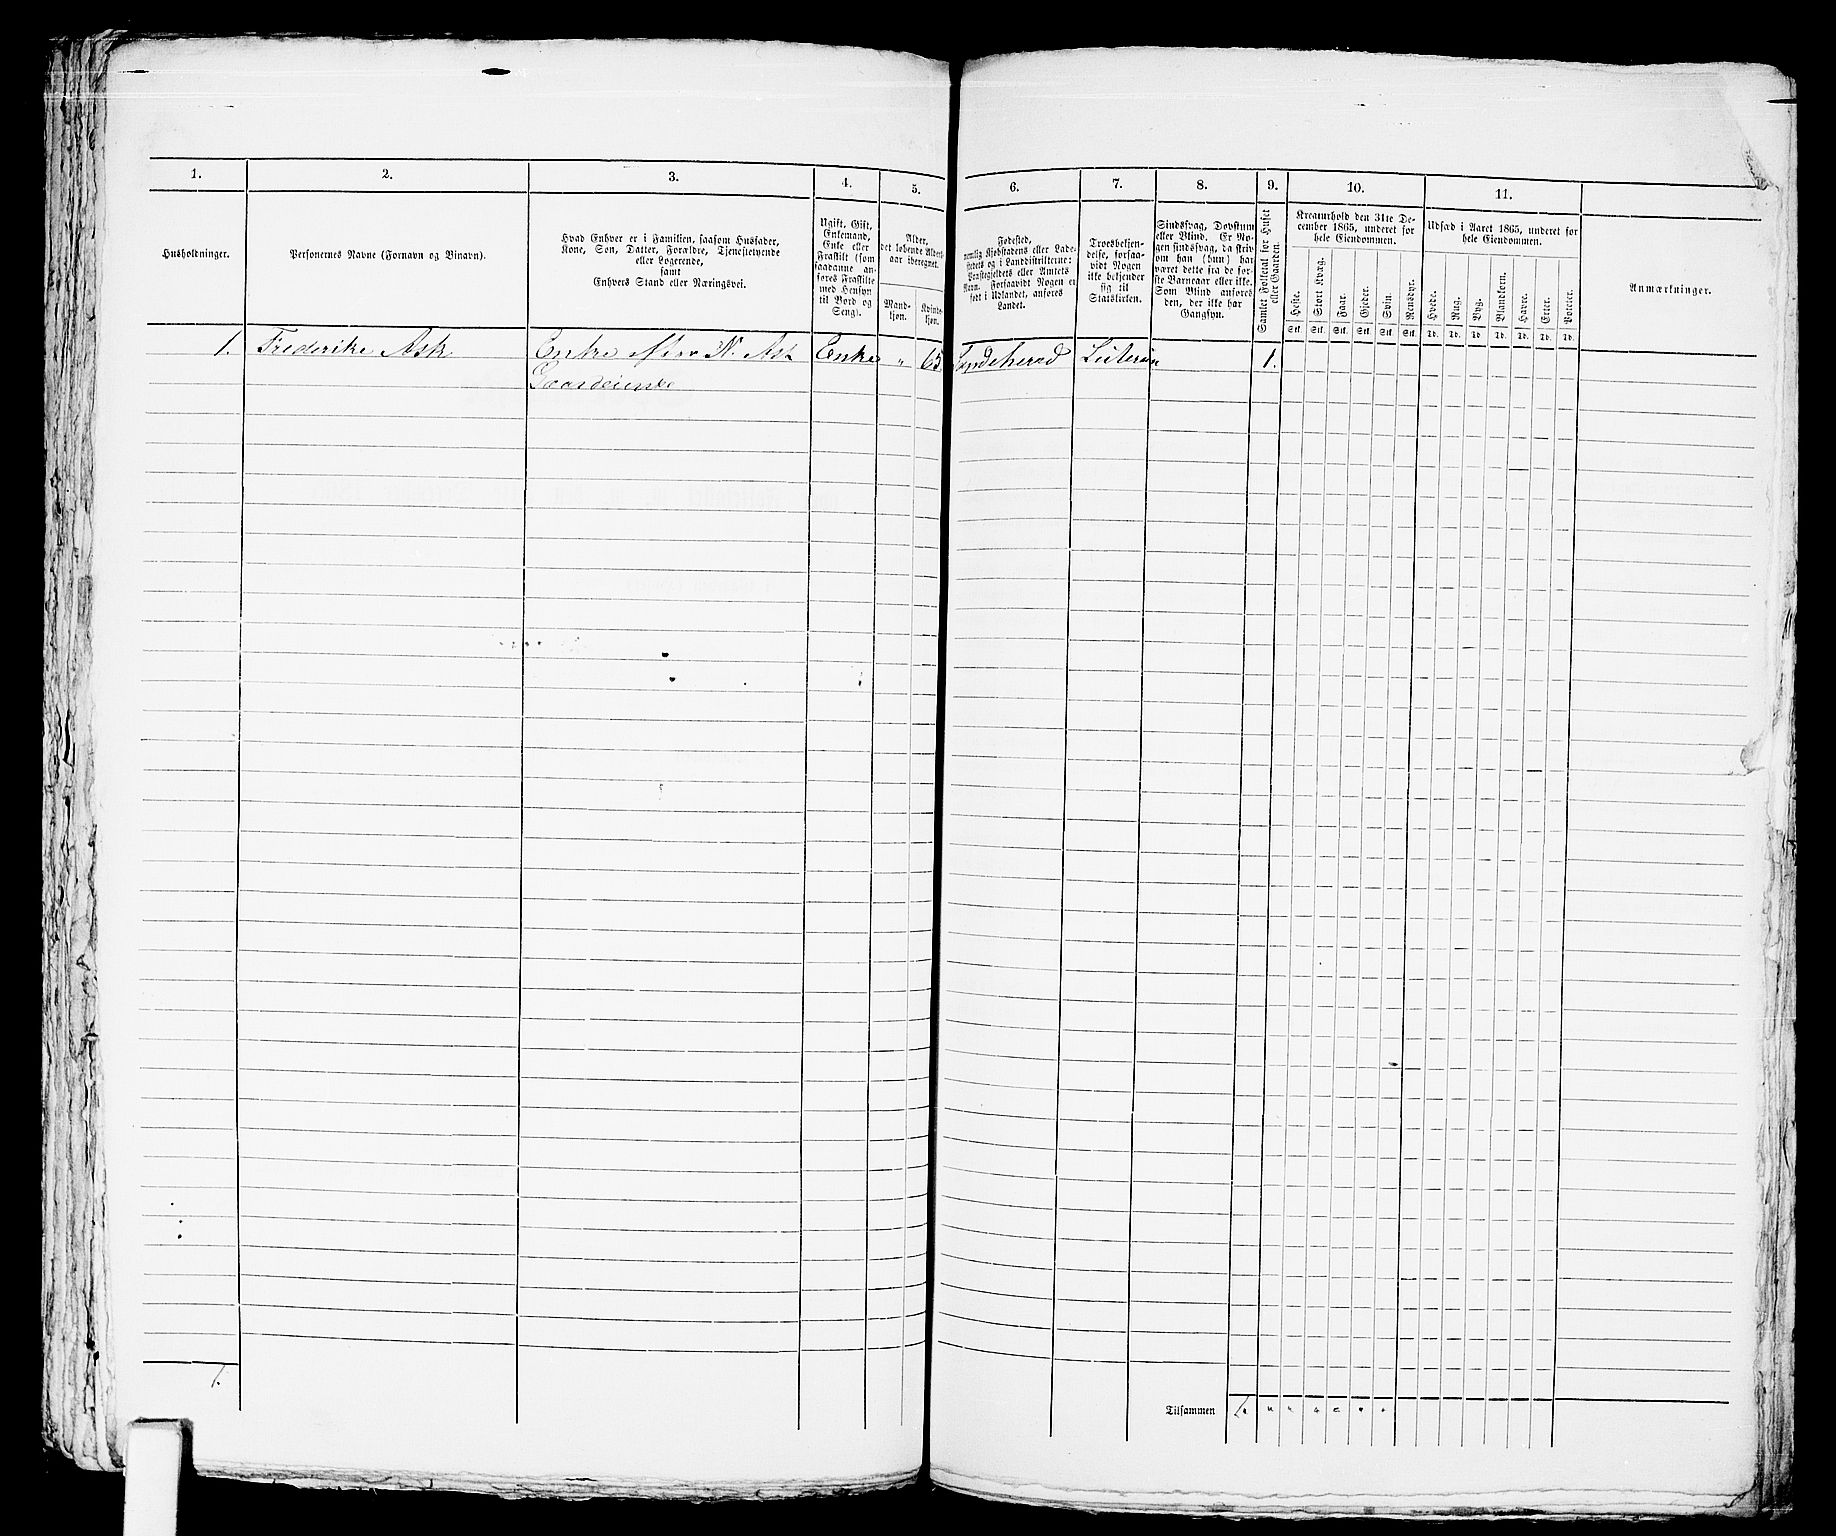 1.
2.
3.
4.
5.
6.
7.
8.
9.
10.
11.
Husholdninger.
Personernes Navne (Fornavn og Binavn).
Hvad Enhver er i Familien, saasom Husfader,
Kone, Søn, Datter, Forældre, Tjenestetyende
eller Logerende,
samt
Enhvers Stand eller Næringsvei.
Ugift, Gift,
Enkemand,
Enke eller
Fraskilt (som
saadanne an-
føres Fraskilte
med Hensyn
til Bord og
Seng).
Alder,
det løbende Alders-
aar iberegnet.
Mand-
kjøn.
Kvinde-
kjøn.
Fødested,
nemlig Kjøbstadens eller Lade-
stedets og i Landdistrikterne:
Præstegjeldets eller Amtets
Navn. Forsaavidt Nogen er
født i Udlandet, anføres
Landet.
Troesbekjen-
delse, forsaa-
vidt Nogen
ikke bekjender
sig til
Statskirken.
Sindssvag, Døvstum
eller Blind. Er No-
gen sindssvag, da skriv
om han (hun) har
været dette fra de før-
ste Barneaar eller ikke.
Som Blind anføres
den, der ikke har
Gangsyn.
Samlet Folketal for Huset
eller Gaarden.
Kreaturhold den 31te De-
cember 1865, underet for
hele Eiendommen.
Heste.
Stort Kvæg.
Faar.
Gjeder.
Svin.
Rensdyr.
Stk. Stk. Stk. Stk. Stk. Stk.
Udsæd i Aaret 1865, underet for
hele Eiendommen.
Hvede.
Rug.
Byg.
Blandkorn.
Havre.
Erter.
Poteter.
Td. Td. Td. Td. Td. Td. Td.
Anmærkninger.
1. Frederike Ask Enke efter N. Ask Enke " 65 Sandeherred 1.
Gaardeierske
1.
Tilsammen